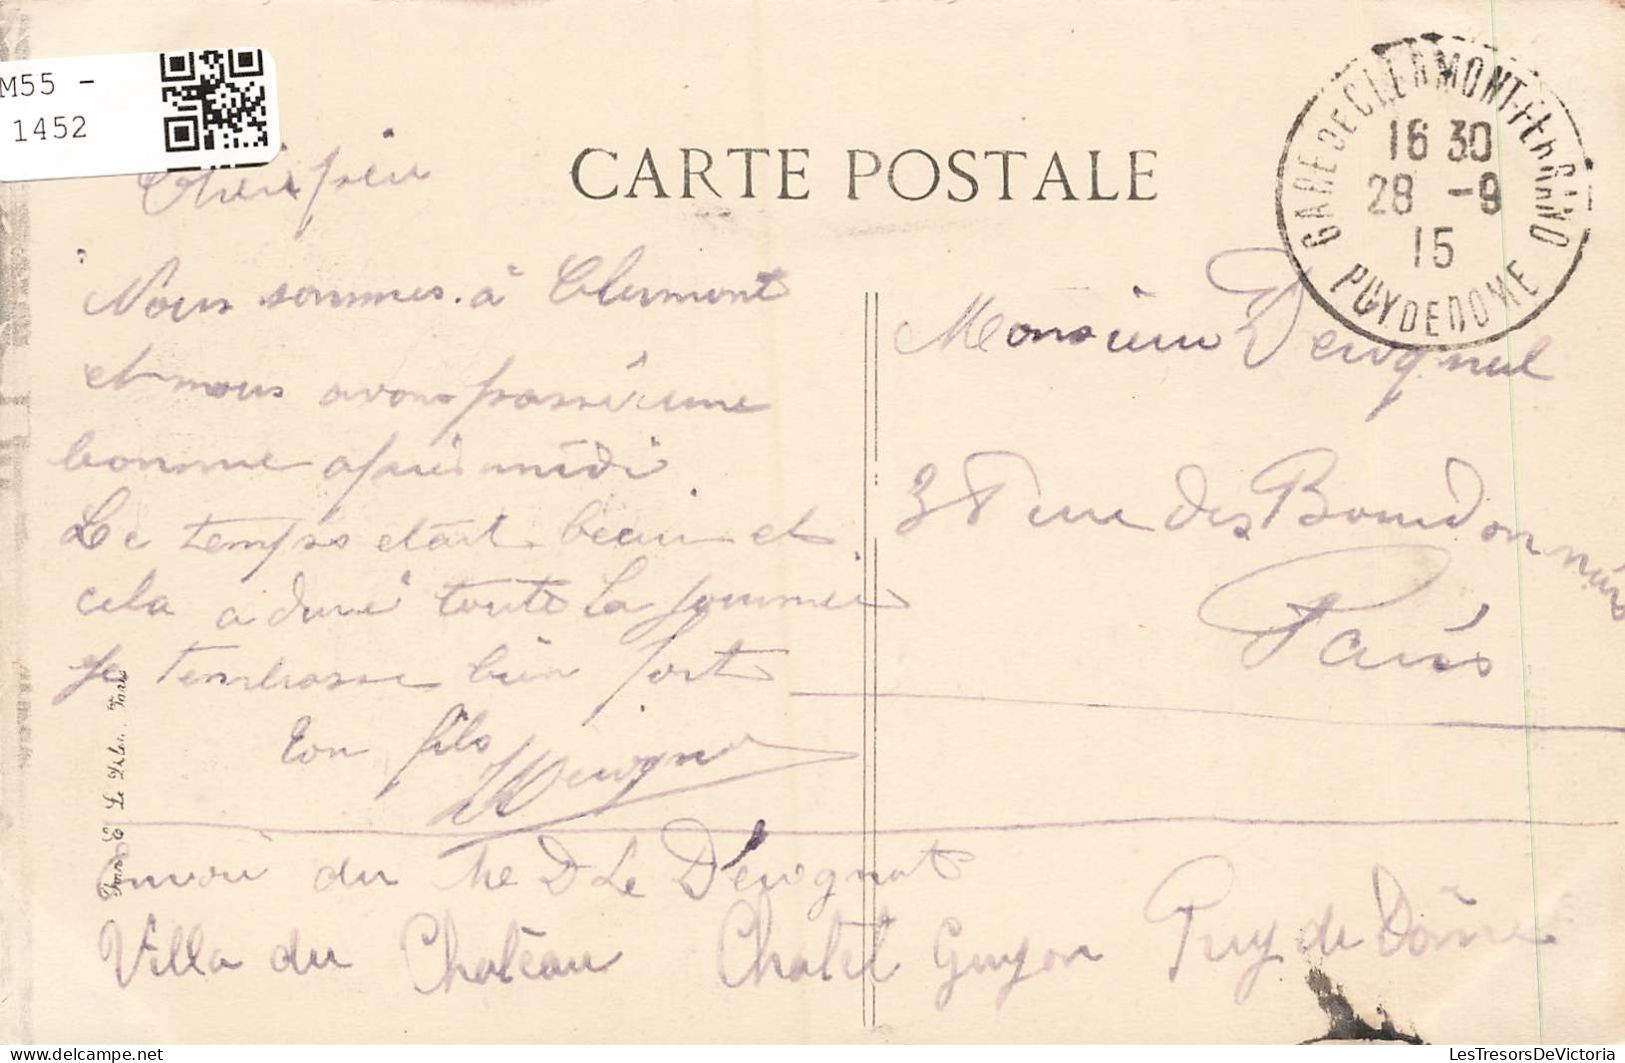 M55 -
1452
CARTE POSTALE
GARE DE CLERMONT-FERRAND
16 30
28 -9
15
PUY DE DOME
Cher père
Nous sommes à Clermont
et nous avons passé une
bonne après midi
Le temps etait beau et
cela a duré toute la journée
Je t'embrasse bien fort
Ton fils
Monsieur Devignal
38 rue des Bourdonnais
Paris
envoi du
Villa du Chateau Chatel Guyon Puy de Dôme
LesTresorsDeVictoria